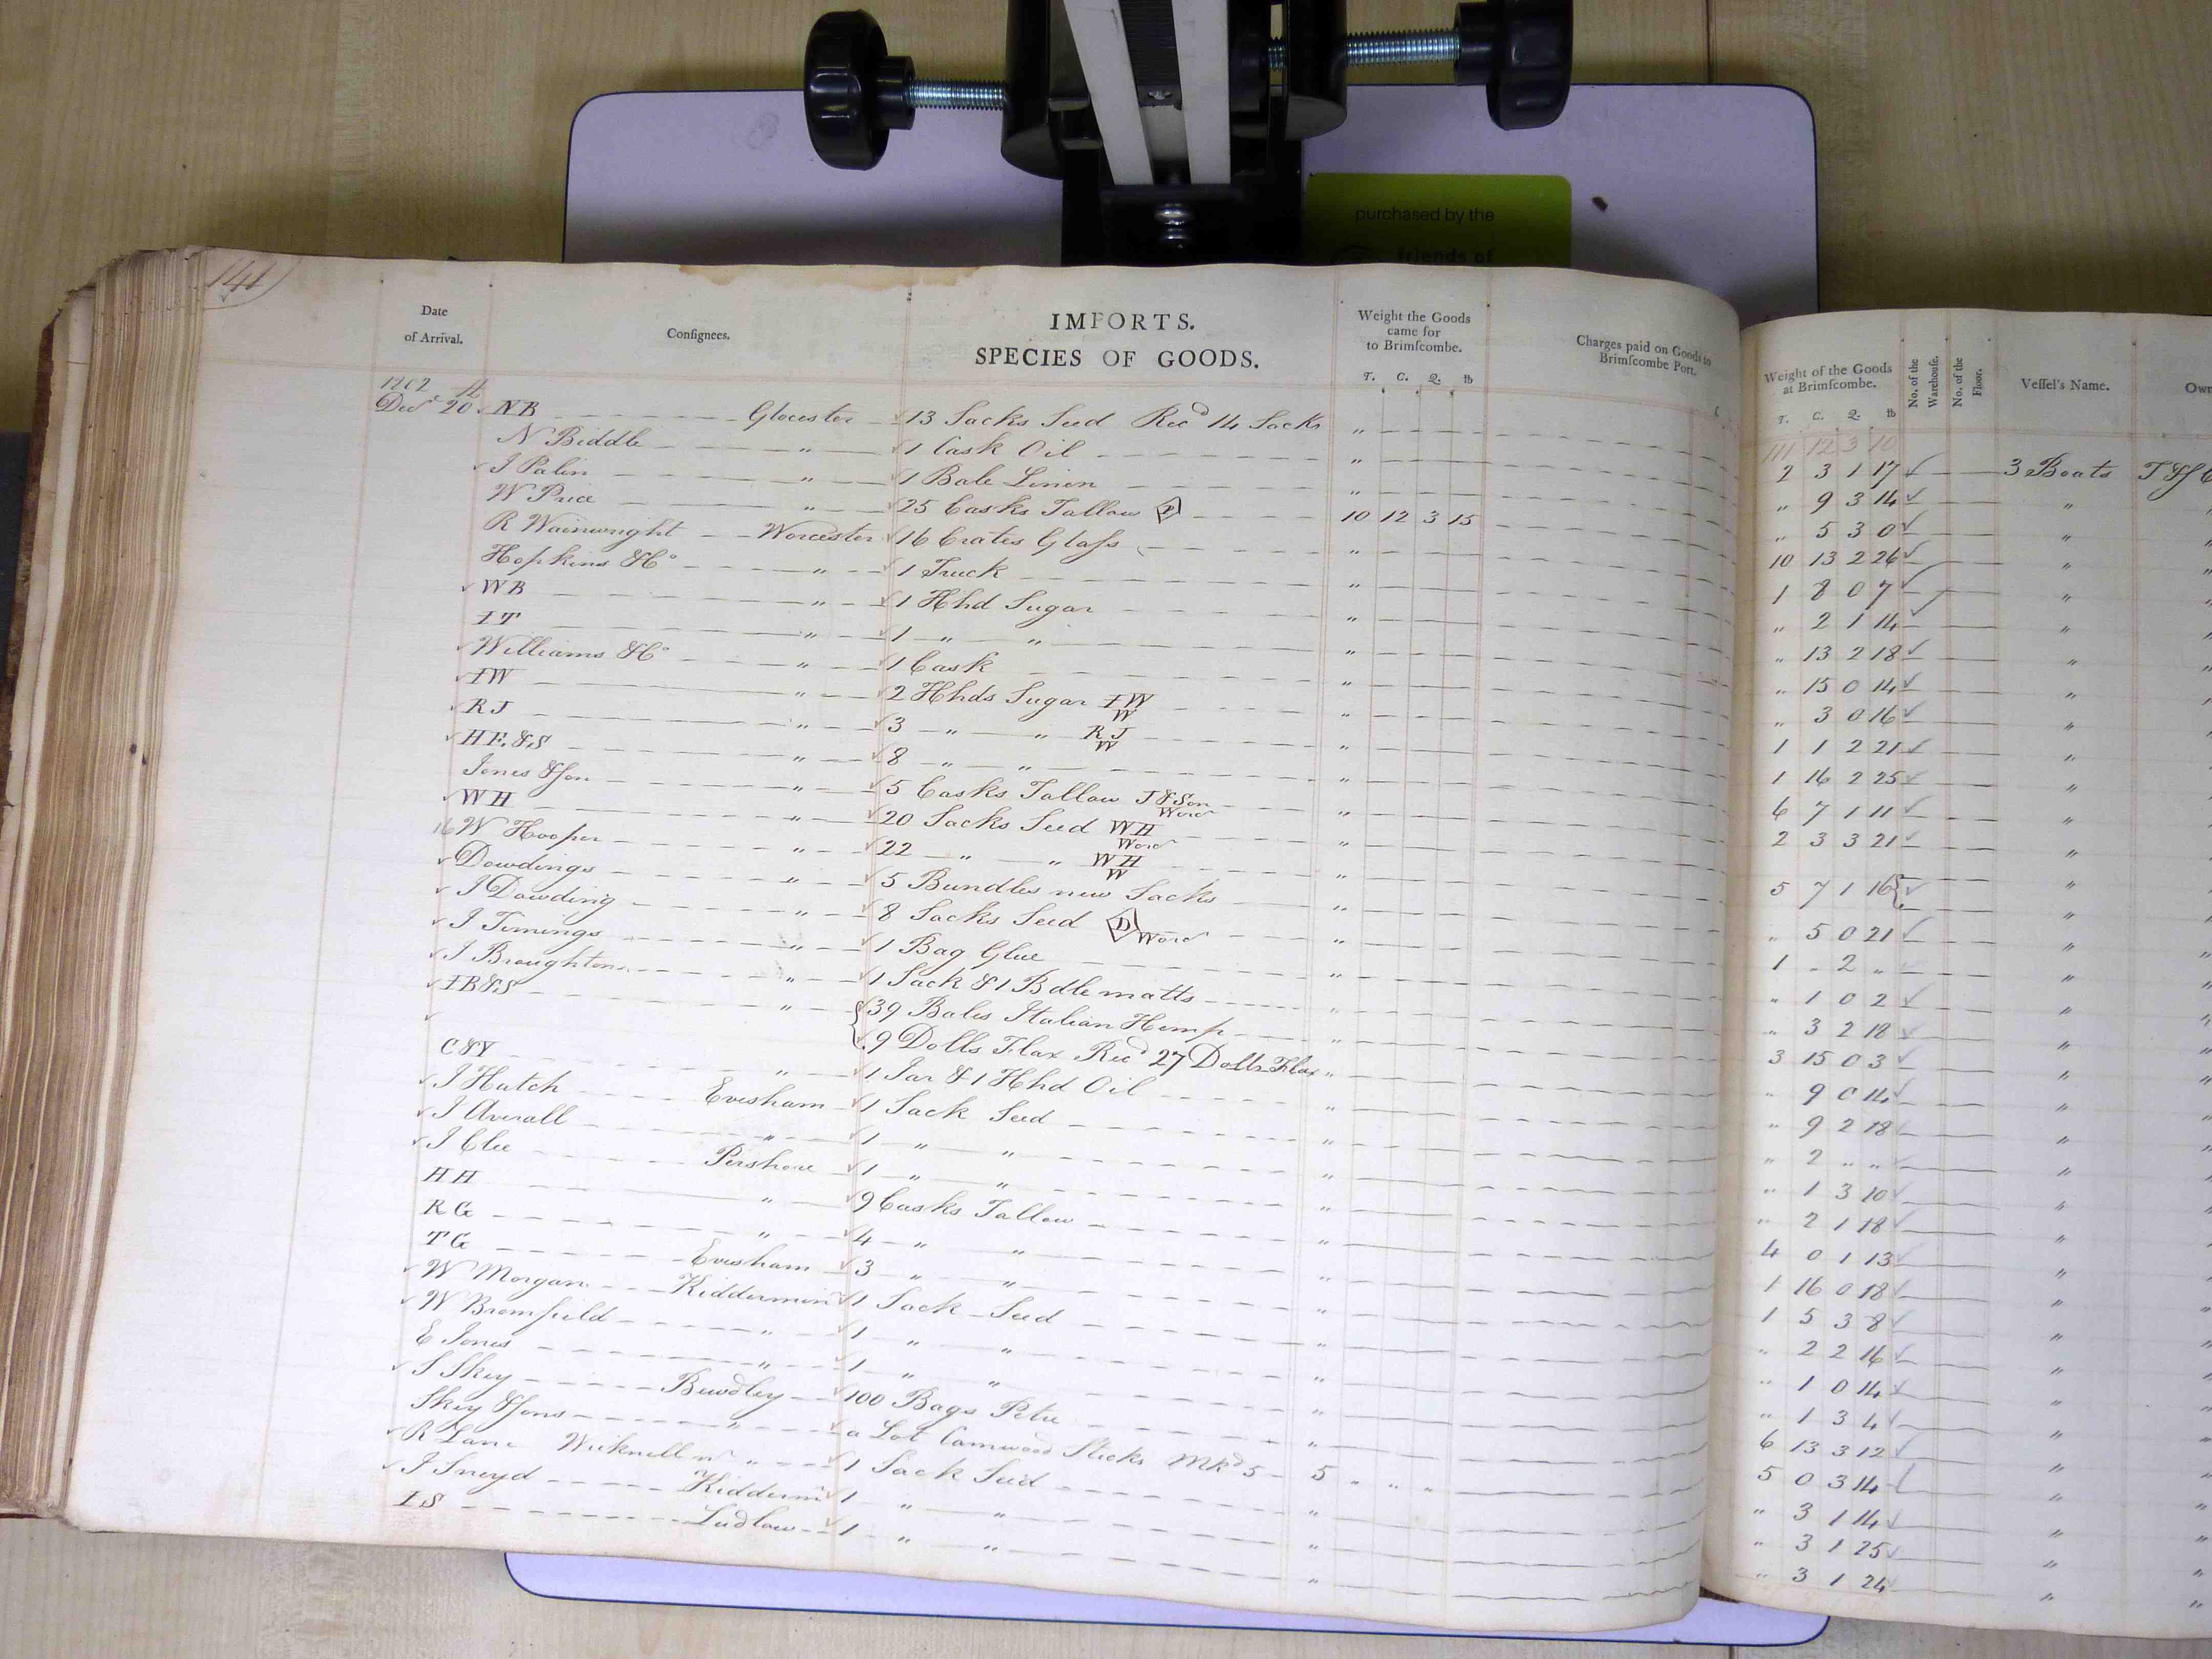 purchased by the
friends of
141
Date of Arrival. Consignees. IMPORTS. SPECIES OF GOODS. Weight the Goods came for to Brimscombe. T. C. Q. lb Charges paid on Goods to Brimscombe Port. Weight of the Goods at Brimscombe. T. C. Q. lb No. of the Warehouse. No. of the Floor. Vessel's Name. Own
1802
111 12 3 10
Decr 20th NB Glocester 13 Sacks Seed Recd 14 Sacks " 2 3 1 17 3 Boats
N Biddle " 1 Cask Oil " " 9 3 14 "
J Palin " 1 Bale Linen " " 5 3 0 "
W Price " 25 Casks Tallow P 10 12 3 15 10 13 2 26 "
R Wainwright Worcester 16 Crates Glass " 1 8 0 7 "
Hopkins & Co " 1 Truck " " 2 1 14 "
WB " 1 Hhd Sugar " " 13 2 18 "
IT " 1 " " " " 15 0 14 "
Williams & Co " 1 Cask " " 3 0 16 "
IW " 2 Hhds Sugar IW W " 1 1 2 21 "
RJ " 3 " " RJ W " 1 14 2 25 "
HE&S " 8 " " " 6 7 1 11 "
Jones & Son " 5 Casks Tallow J&Son Worcr " 2 3 3 21 "
WH " 20 Sacks Seed WH Worcr "
16 W Hooper " 22 " " WH W " 5 7 1 16 "
Dowdings " 5 Bundles new Sacks " " 5 0 21 "
J Dowding " 8 Sacks Seed D Worcr " 1 " 2 " "
J Timings " 1 Bag Glue " " 1 0 2 "
J Broughton " 1 Sack & 1 Bdle matts " 3 2 18 "
IB&S " 39 Bales Italian Hemp " 3 15 0 3 "
9 Dolls Flax Recd 27 Dolls Flax " " 9 0 14 "
C&Y " 1 Jar & 1 Hhd Oil " " 9 2 18 "
J Hatch Evesham 1 Sack Seed " " 2 " " "
J Averall " 1 " " " " 1 3 10 "
J Clee Pershore 1 " " " " 2 1 18 "
HH " 9 Casks Tallow " 4 0 1 13 "
RG " 4 " " " 1 16 0 18 "
TG Evesham 3 " " " 1 5 3 8 "
W Morgan Kiddermin 1 Sack Seed " " 2 2 16 "
W Bromfield " 1 " " " " 1 0 14 "
E Jones " 1 " " " " 1 3 4 "
S Skey Bewdley 100 Bags Petre " 6 13 3 12 "
Skey & Sons " a Lot Camwood Sticks Mkd 5 5 " " " 5 0 3 14 "
R Lane " 1 Sack Seed " " 3 1 14 "
J Sneyd Kidderm 1 " " " " 3 1 25 "
IS Ludlow 1 " " " " 3 1 24 "